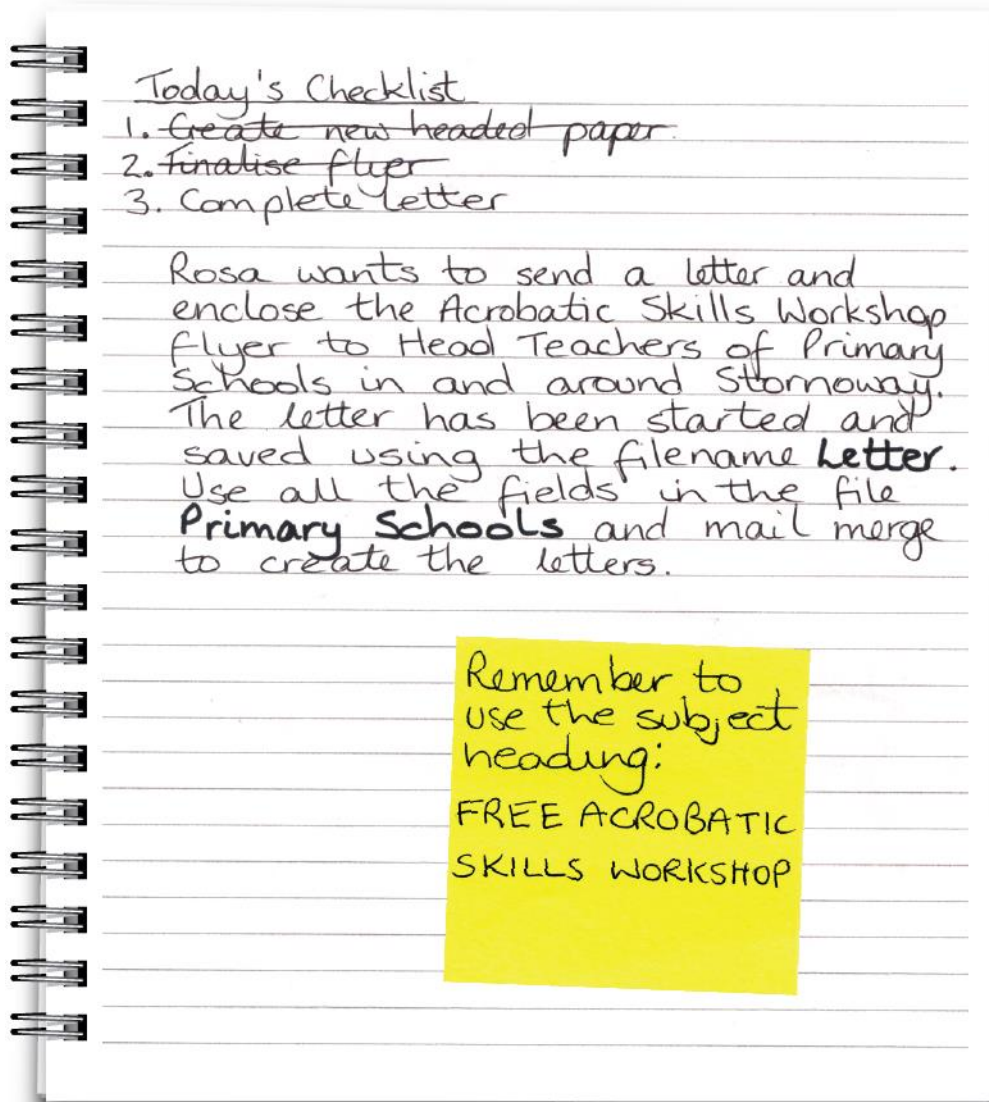 Today's Checklist
1. Create new headed paper.
2. Finalise flyer
3. Complete letter
Rosa wants to send a letter and
enclose the Acrobatic Skills Workshop
flyer to Head Teachers of Primary
Schools in and around Stornoway.
The letter has been started and
saved using the filename Letter.
Use all the fields in the file
Primary Schools and mail merge
to create the letters.
Remember to
use the subject
heading:
FREE ACROBATIC
SKILLS WORKSHOP